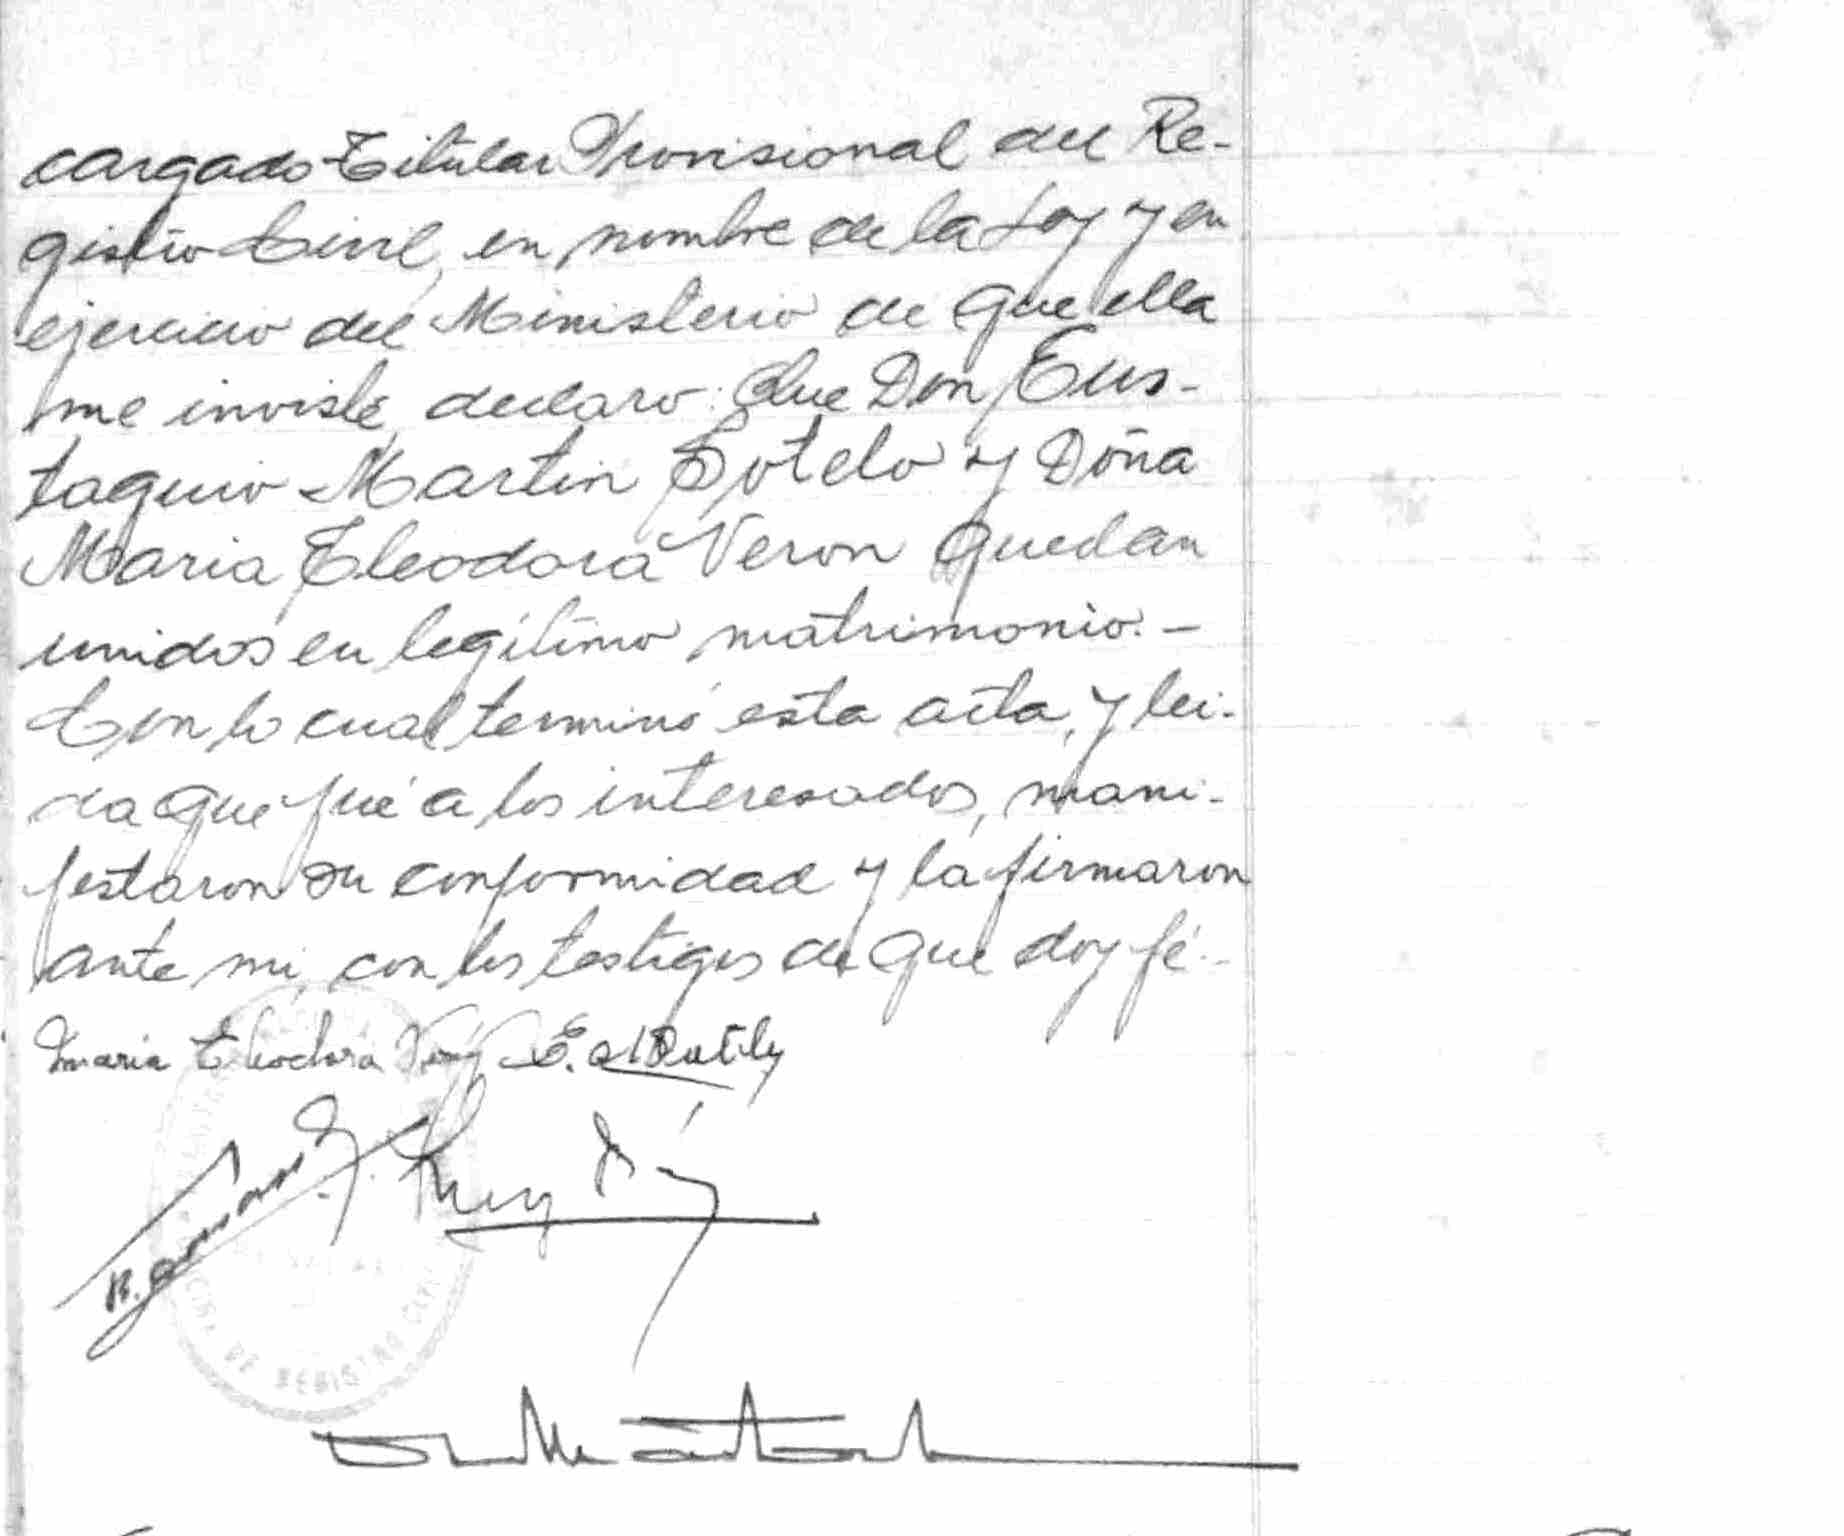 cargado Titular Provisional del Re-
gistro Civil, en nombre de la Ley y en
ejercicio del Ministerio de que ella
me inviste, declaro: Que Don Eus-
taquio Martin Sotelo y Doña
Maria Eleodora Veron quedan
unidos en legítimo matrimonio.-
Con lo cual terminó esta acta, y lei-
da que fué a los interesados, mani-
festaron su conformidad y la firmaron
ante mi, con los testigos de que doy fé.-
Maria Eleodora
DE REGISTRO CIVIL